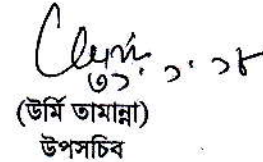 ৩১.১.১৮
(উর্মি তামান্না)
উপসচিব